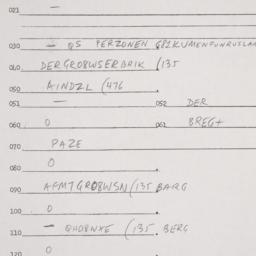 021 —
030 — QS PERZONEN
040 DERGRO8WSERBRIK (135
050 AINDZL (476
051 — 052 DER
060 0 061 BREG+
070 PAZE
080 0
090 AFMTGRO8WSN(135 BARG
100 0
110 — QHOBNXE (135. BERG
120 0